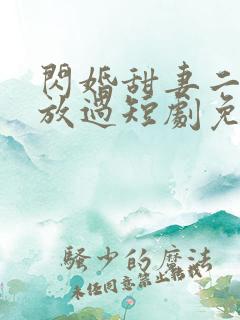 閃婚甜妻二
放過短劇免
騷少的魔法
未經同意禁止轉載